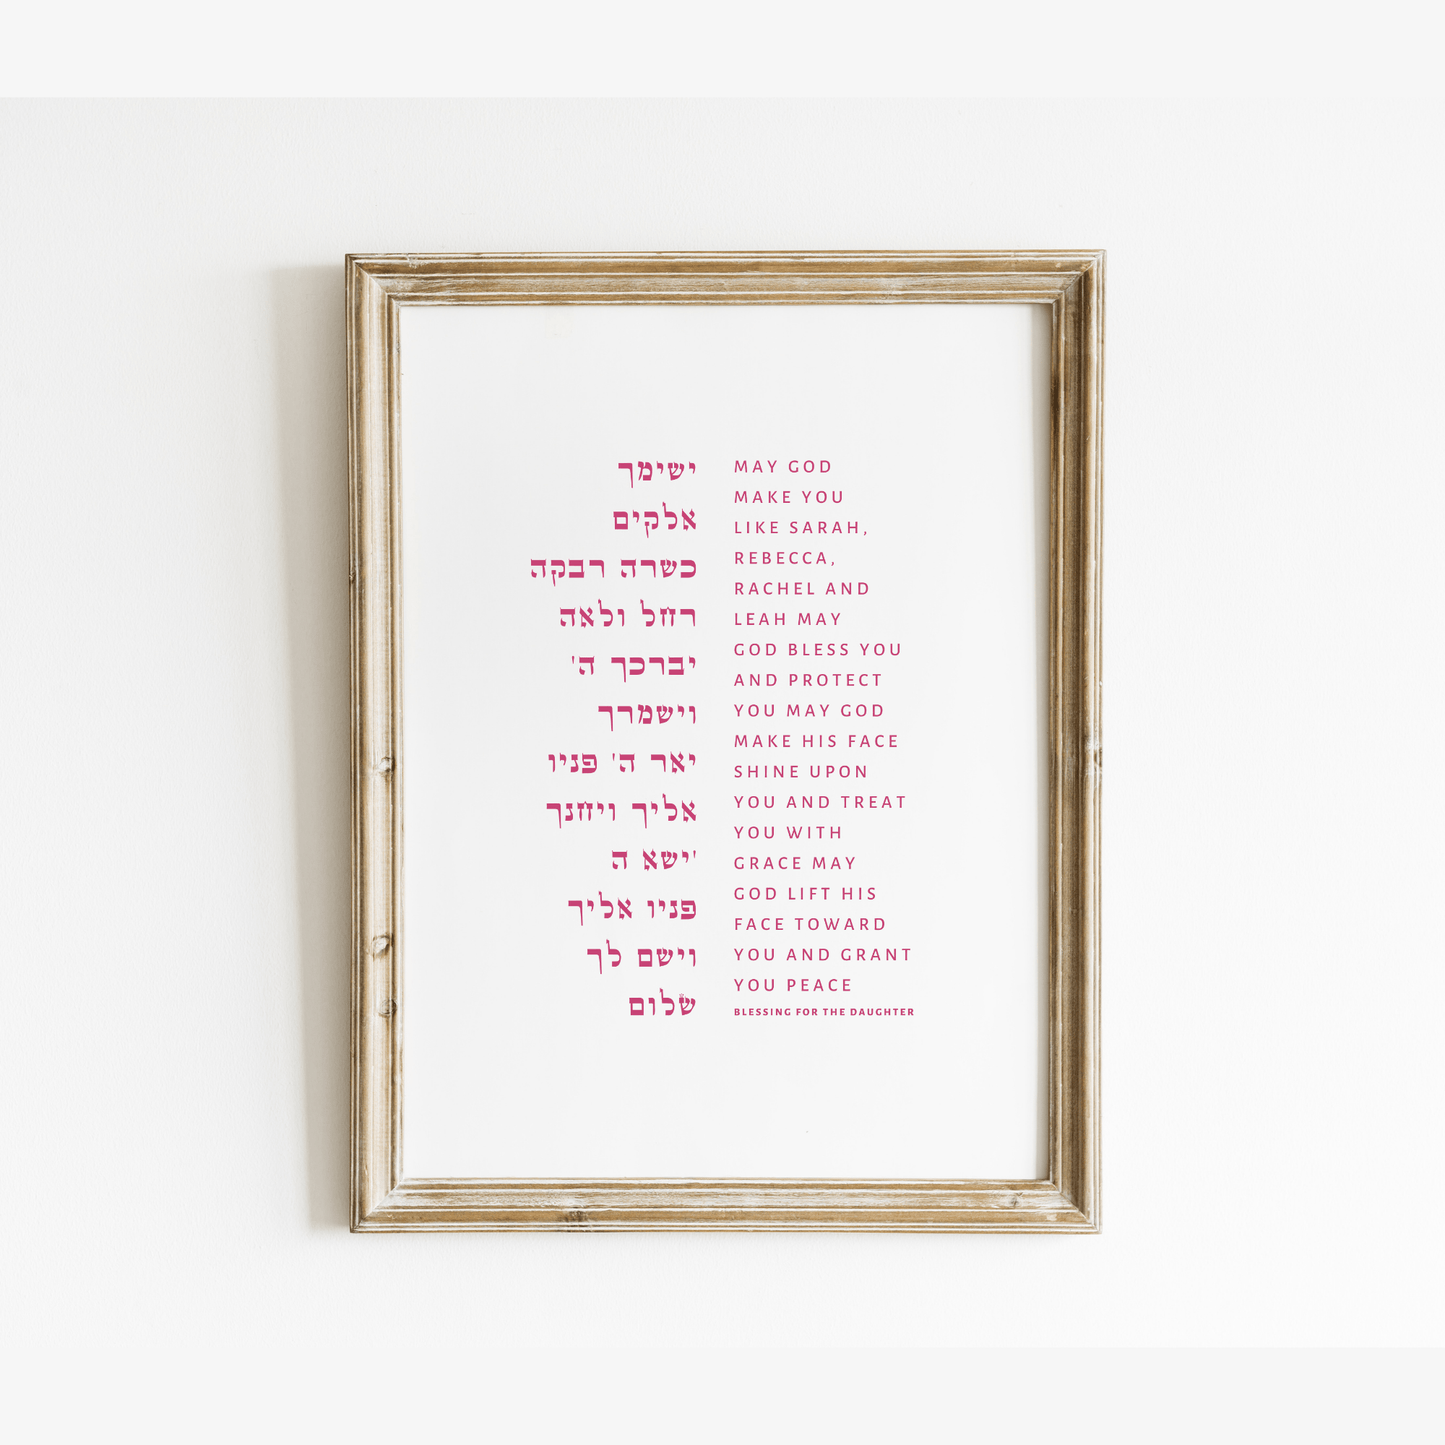 ישימך
אלקים
כשרה רבקה
רחל ולאה
יברכך ה'
וישמרך
יאר ה' פניו
אליך ויחנך
'ישא ה
פניו אליך
וישם לך
שלום
MAY GOD
MAKE YOU
LIKE SARAH,
REBECCA,
RACHEL AND
LEAH MAY
GOD BLESS YOU
AND PROTECT
YOU MAY GOD
MAKE HIS FACE
SHINE UPON
YOU AND TREAT
YOU WITH
GRACE MAY
GOD LIFT HIS
FACE TOWARD
YOU AND GRANT
YOU PEACE
BLESSING FOR THE DAUGHTER